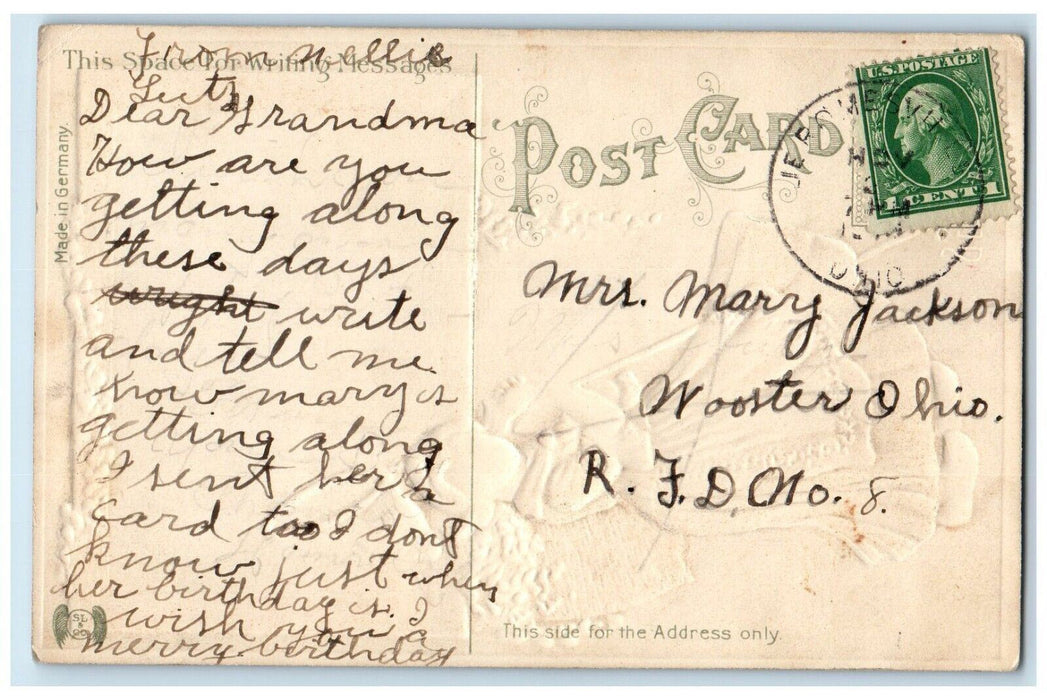 From Nellie
This Space for Writing Messages
Lutz
Dear Grandma
How are you
getting along
these days
wright write
and tell me
how mary is
getting along
I sent her a
card too I dont
know just when
her birthday is. I
wish you a
merry birthday
Made in Germany.
POST CARD
U.S. POSTAGE
1 CENTS 1
JEROMESVILLE
OHIO
Mrs. Mary Jackson
Wooster Ohio.
R. F. D. No. 8.
This side for the Address only.